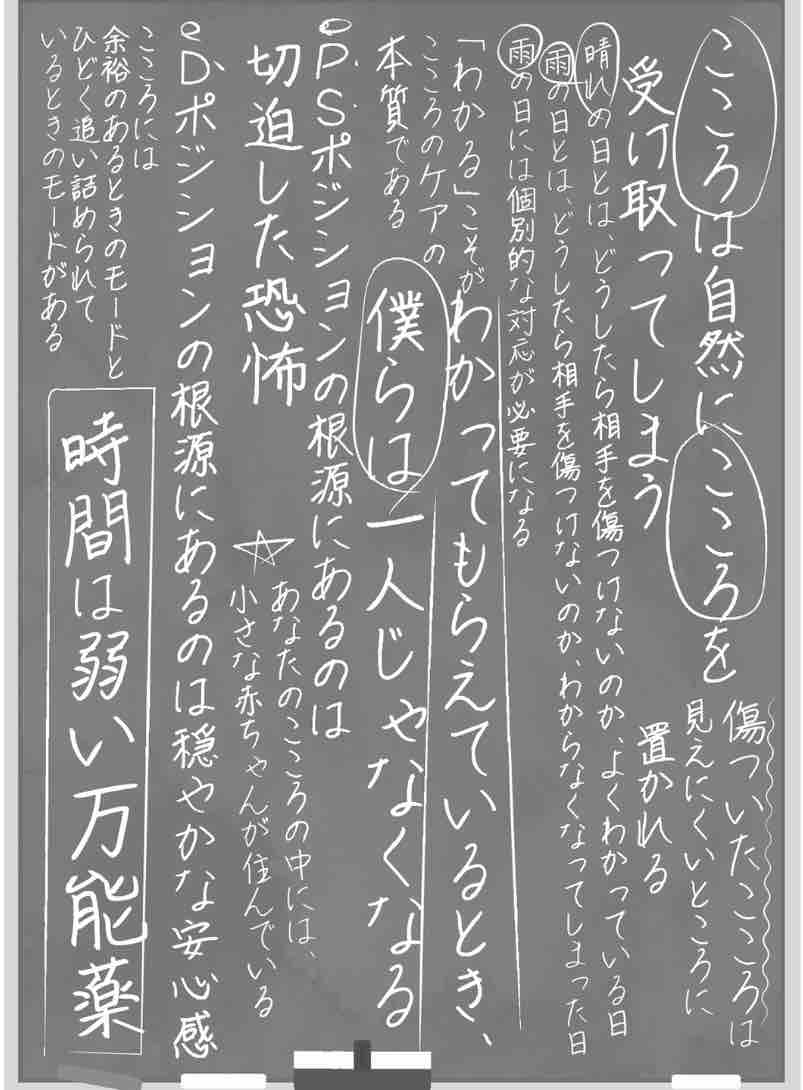 こころは自然にこころを
受け取ってしまう
傷ついたこころは
見えにくいところに
置かれる
晴れの日とは、どうしたら相手を傷つけないのか、よくわかっている日
雨の日とは、どうしたら相手を傷つけないのか、わからなくなってしまった日
雨の日には個別的な対応が必要になる
「わかる」こそが
こころのケアの
本質である
わかってもらえているとき、
僕らは一人じゃなくなる
P.S.ポジションの根源にあるのは
切迫した恐怖
☆あなたのこころの中には、
小さな赤ちゃんが住んでいる
D.ポジションの根源にあるのは穏やかな安心感
こころには
余裕のあるときのモードと
ひどく追い詰められて
いるときのモードがある
時間は弱い万能薬